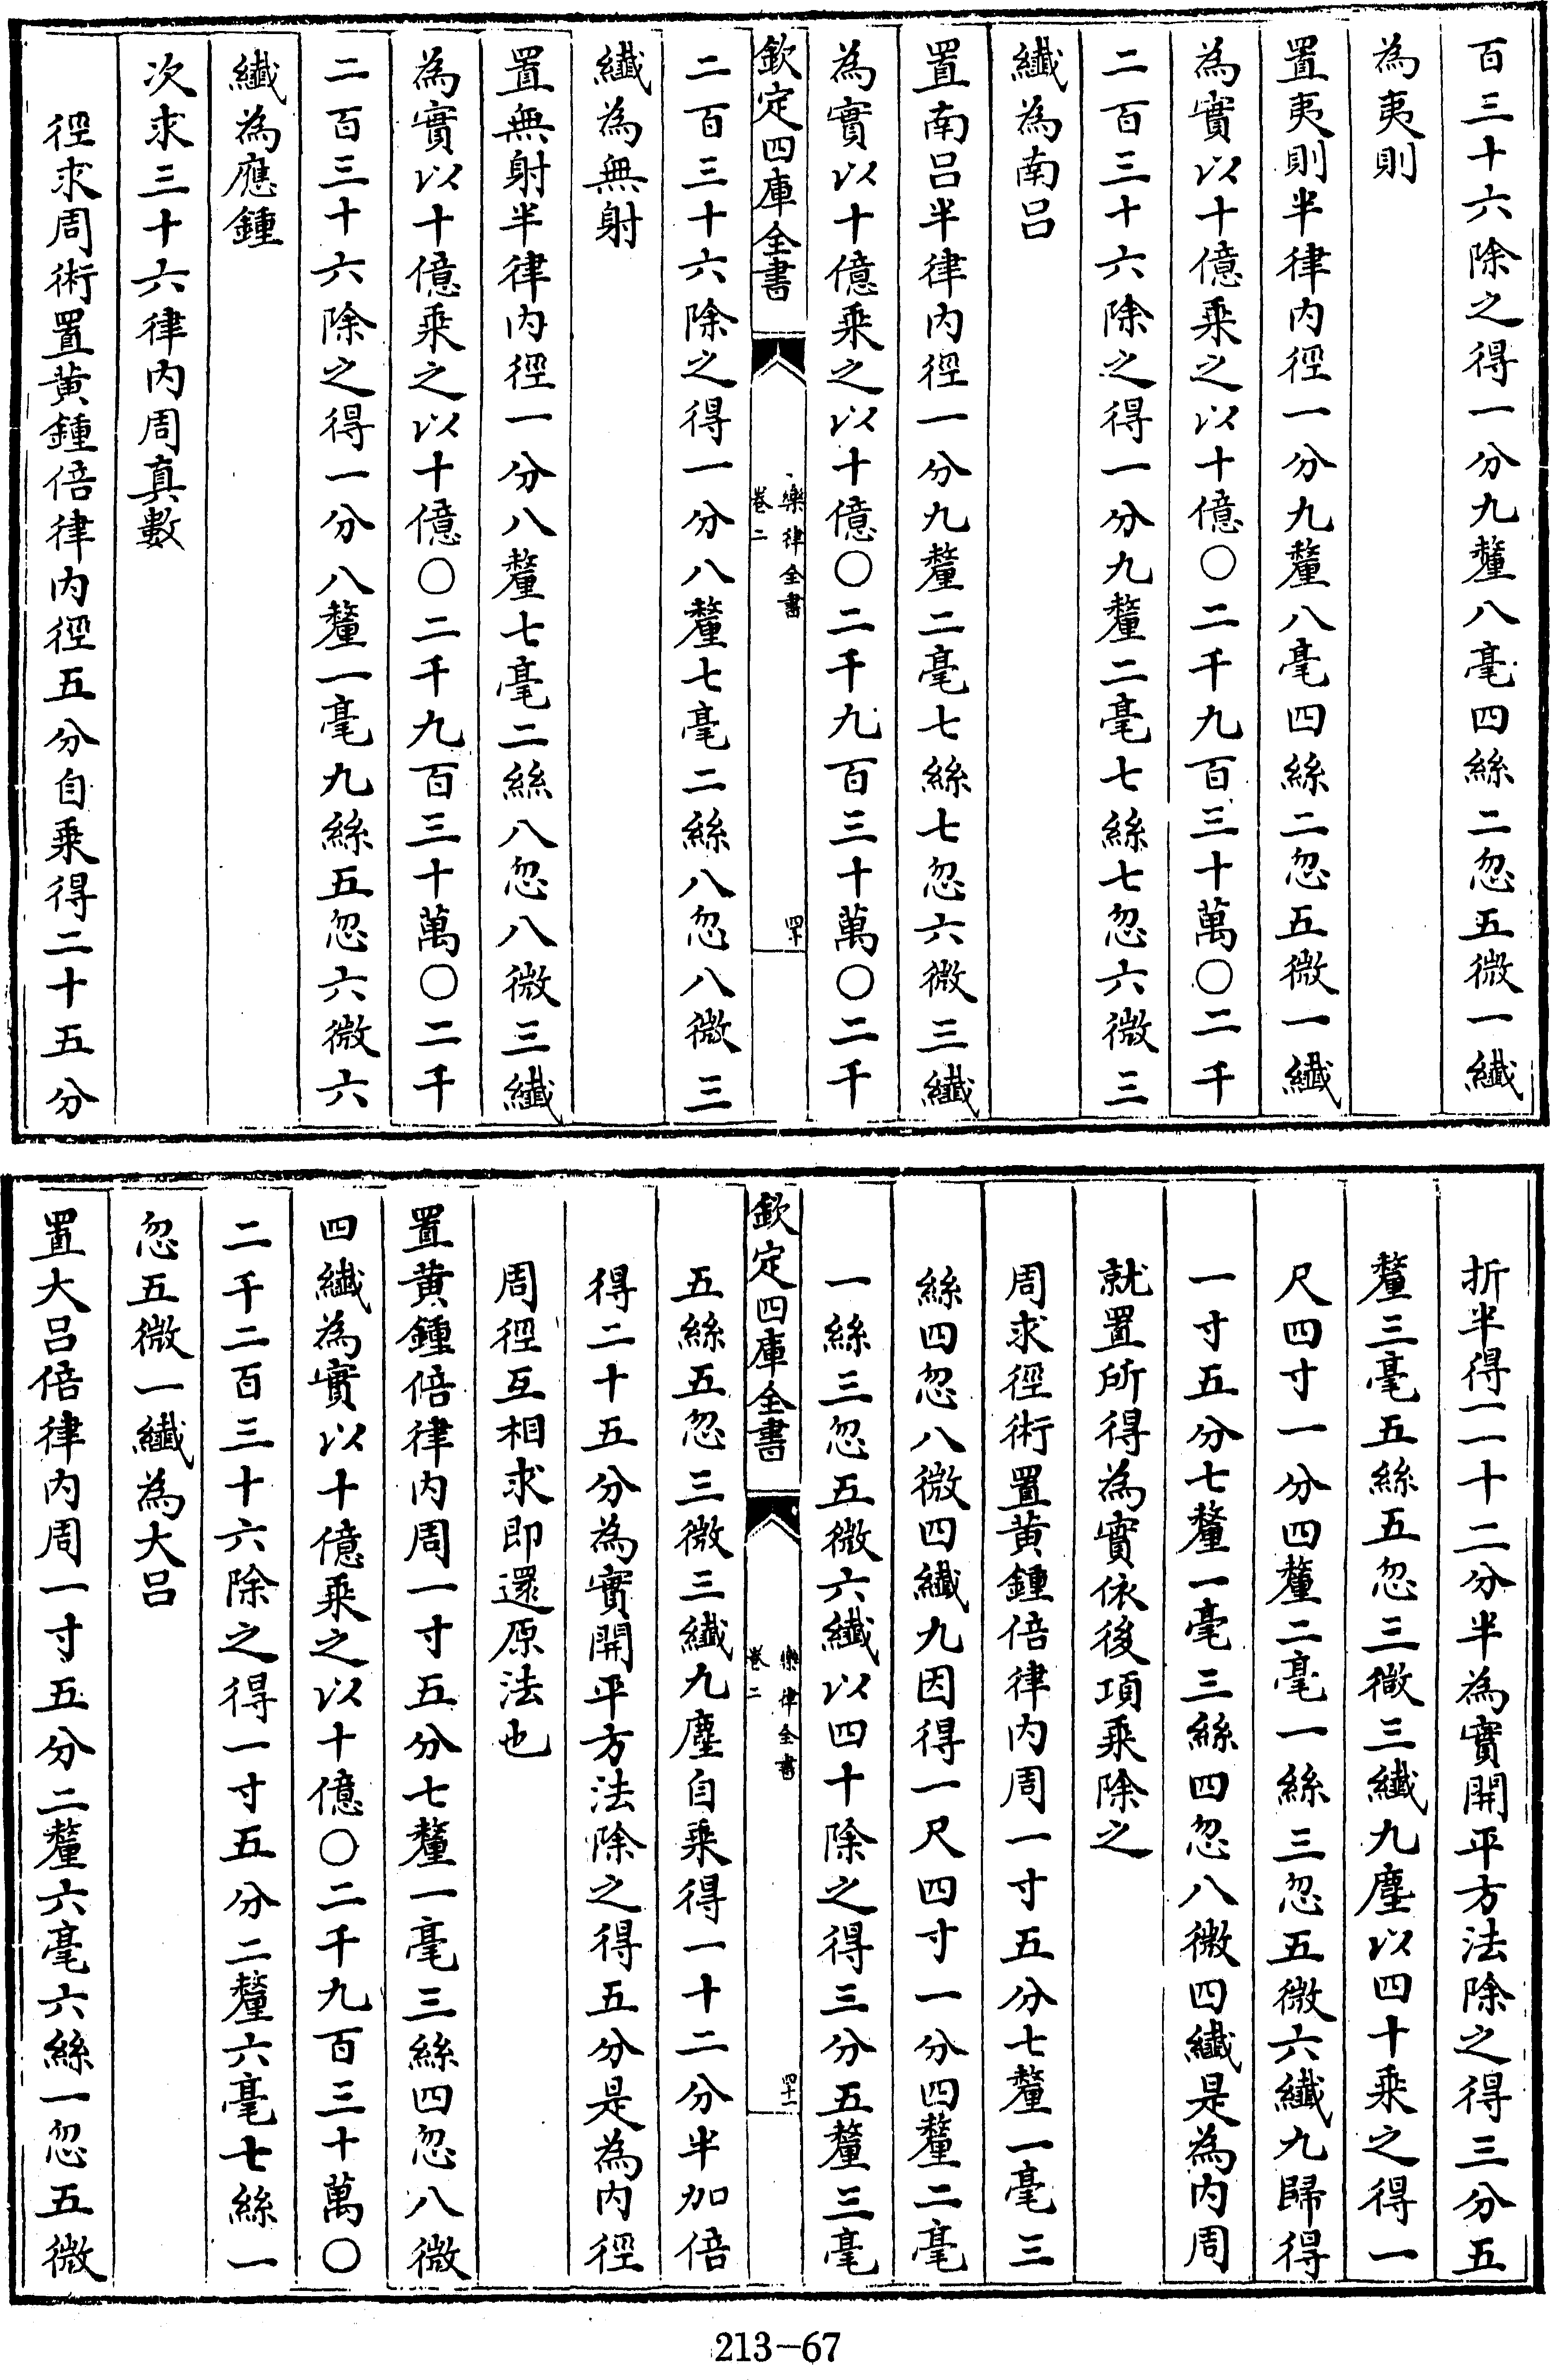 百三十六除之得一分九釐八毫四絲二忽五微一纖
為夷則
置夷則半律内徑一分九釐八毫四絲二忽五微一纖
為實以十億乘之以十億〇二千九百三十萬〇二千
二百三十六除之得一分九釐二毫七絲七忽六微三
纖為南呂
置南呂半律内徑一分九釐二毫七絲七忽六微三纖
為實以十億乘之以十億〇二千九百三十萬〇二千
欽定四庫全書
樂律全書
卷二
四十
二百三十六除之得一分八釐七毫二絲八忽八微三
纖為無射
置無射半律内徑一分八釐七毫二絲八忽八微三纖
為實以十億乘之以十億〇二千九百三十萬〇二千
二百三十六除之得一分八釐一毫九絲五忽六微六
纖為應鍾
次求三十六律内周真數
徑求周術置黄鍾倍律内徑五分自乘得二十五分
折半得一十二分半為實開平方法除之得三分五
釐三毫五絲五忽三微三纖九塵以四十乘之得一
尺四寸一分四釐二毫一絲三忽五微六纖九歸得
一寸五分七釐一毫三絲四忽八微四纖是為内周
就置所得為實依後項乘除之
周求徑術置黄鍾倍律内周一寸五分七釐一毫三
絲四忽八微四纖九因得一尺四寸一分四釐二毫
一絲三忽五微六纖以四十除之得三分五釐三毫
欽定四庫全書
樂律全書
卷二
四十一
五絲五忽三微三纖九塵自乘得一十二分半加倍
得二十五分為實開平方法除之得五分是為内徑
周徑互相求即還原法也
置黄鍾倍律内周一寸五分七釐一毫三絲四忽八微
四纖為實以十億乘之以十億〇二千九百三十萬〇
二千二百三十六除之得一寸五分二釐六毫七絲一
忽五微一纖為大呂
置大呂倍律内周一寸五分二釐六毫六絲一忽五微
213-67